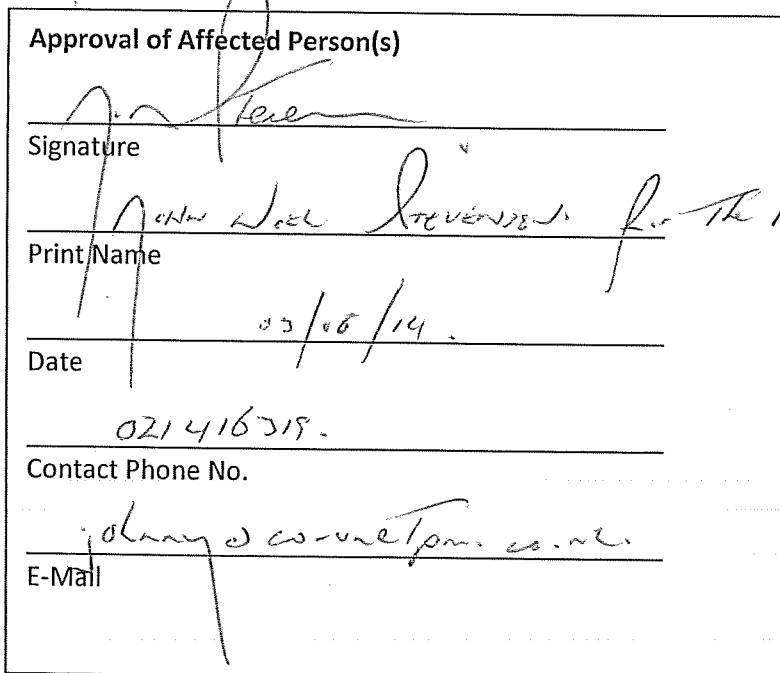 Approval of Affected Person(s)
Signature
John Noel Stevenson. for The
Print Name
03/06/14.
Date
021416319.
Contact Phone No.
E-Mail